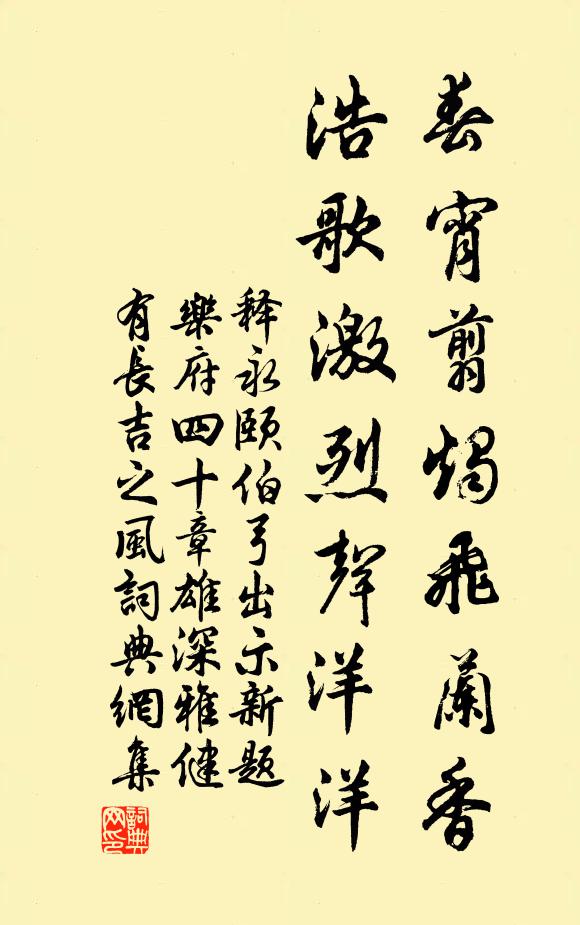 春宵翦燭飛蘭香
浩歌激烈聲洋洋
释永颐伯弓出示新题
樂府四十章雄深雅健
有長吉之風詞典網集
詞典網印